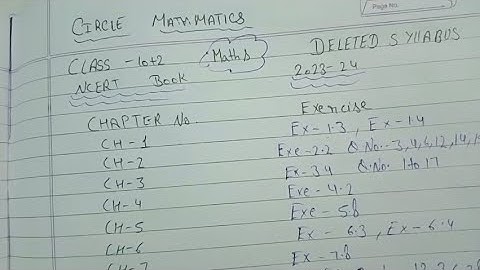 Page No.
CIRCLE MATHMATICS
DELETED SYLLABUS
CLASS - 10+2
Maths
2023-24
NCERT Book
CHAPTER No.
Exercise
CH-1
Ex-1.3, Ex-1.4
CH-2
Exe-2.2 Q.No.-3,4,6,12,14,
CH-3
Ex-3.4 Q.No. 1 to 17
CH-4
Exe-4.2
CH-5
Exe-5.8
CH-6
Ex-6.3, Ex-6.4
CH-7
Ex-7.8